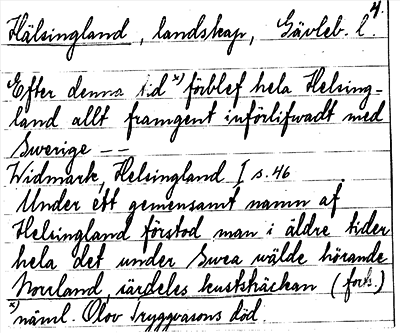 4.
Hälsingland, landskap, Gävleb. l.
Efter denna tid x) förblef hela Helsing-
land allt framgent införlifwadt med
Swerige --
Widmark, Helsingland I s. 46
Under ett gemensamt namn af
Helsingland förstod man i äldre tider
hela det under Swea wälde hörande
Norrland, särdeles kuststräckan (forts.)
x) näml. Olov Tryggvasons död.